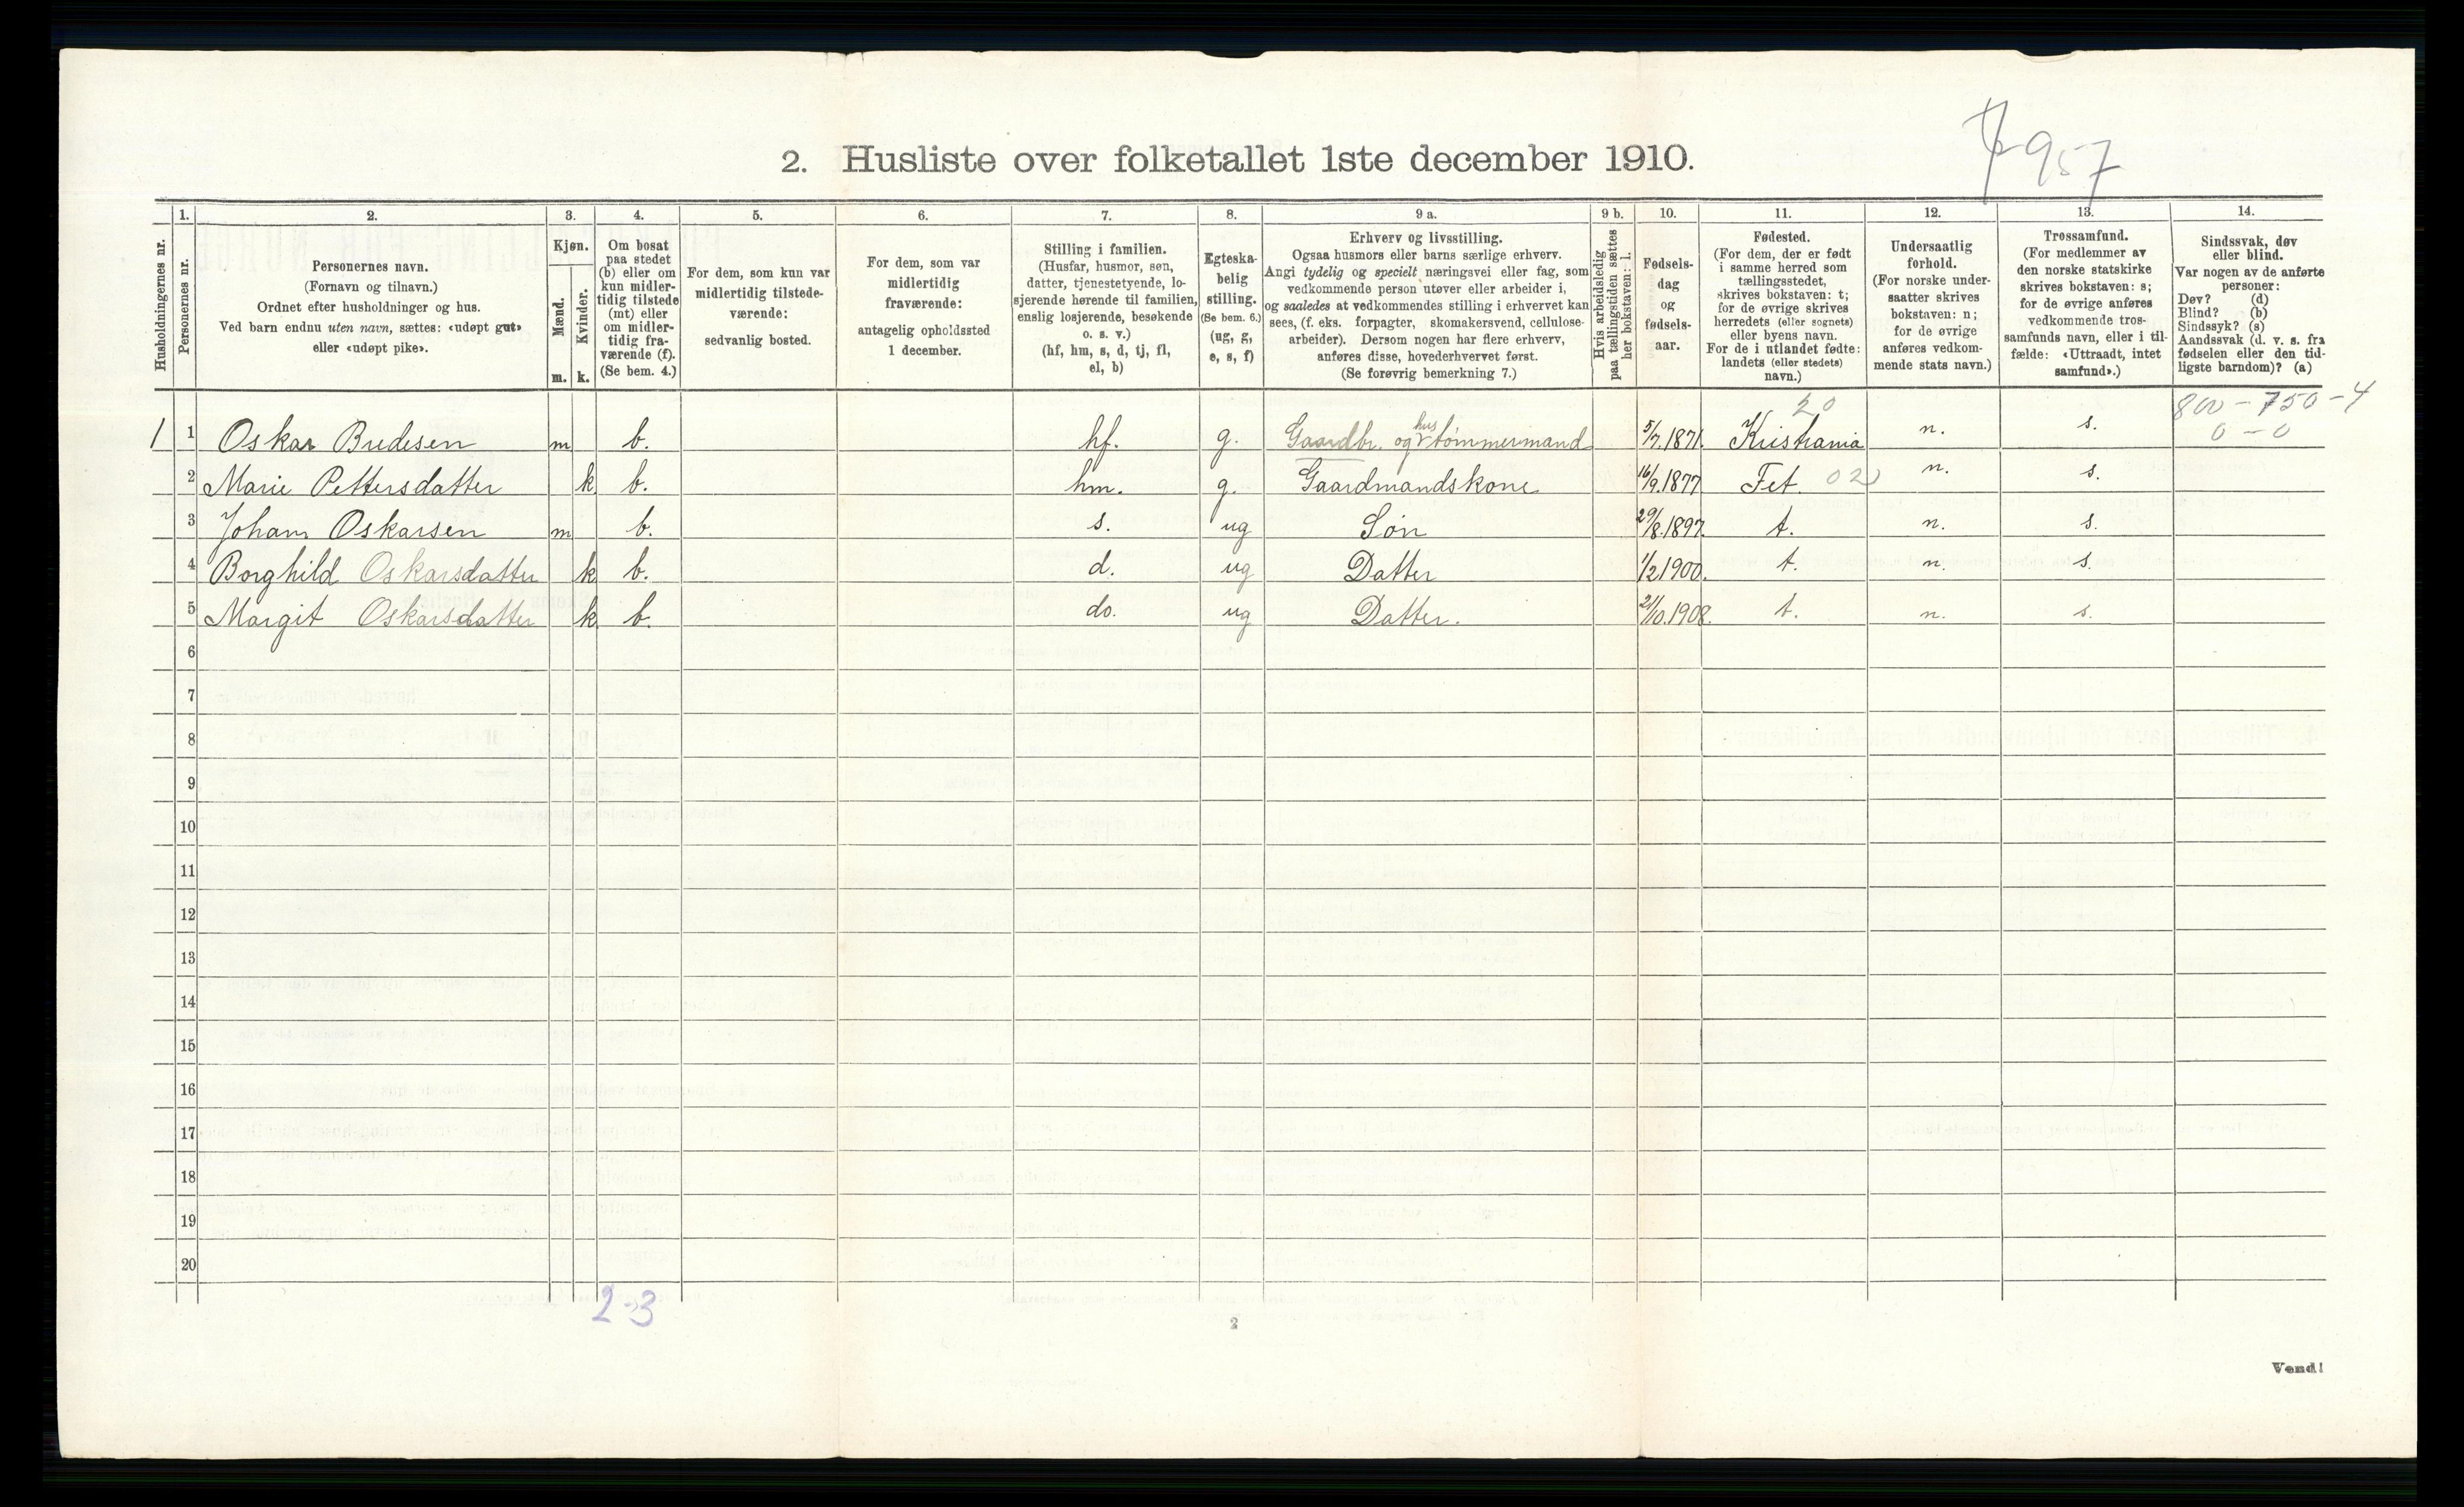 7957
2. Husliste over folketallet 1ste december 1910.
Husholdningernes nr.
1.
Personernes nr.
2.
Personernes navn.
(Fornavn og tilnavn.)
Ordnet efter husholdninger og hus.
Ved barn endnu uten navn, sættes: «udøpt gut»
eller «udøpt pike».
3.
Kjøn.
Mænd.
Kvinder.
m.
k.
4.
Om bosat
paa stedet
(b) eller om
kun midler-
tidig tilstede
(mt) eller
om midler-
tidig fra-
værende (f).
(Se bem. 4.)
5.
For dem, som kun var
midlertidig tilstede-
værende:
sedvanlig bosted.
6.
For dem, som var
midlertidig
fraværende:
antagelig opholdssted
1 december.
7.
Stilling i familien.
(Husfar, husmor, søn,
datter, tjenestetyende, lo-
sjerende hørende til familien,
enslig losjerende, besøkende
o. s. v.)
(hf, hm, s, d, tj, fl,
el, b)
8.
Egteska-
belig
stilling.
(Se bem. 6.)
(ug, g,
e, s, f)
9 a.
Erhverv og livsstilling.
Ogsaa husmors eller barns særlige erhverv.
Angi tydelig og specielt næringsvei eller fag, som
vedkommende person utøver eller arbeider i,
og saaledes at vedkommendes stilling i erhvervet kan
sees, (f. eks. forpagter, skomakersvend, cellulose-
arbeider). Dersom nogen har flere erhverv,
anføres disse, hovederhvervet først.
(Se forøvrig bemerkning 7.)
9 b.
Hvis arbeidsledig
paa tællingstiden sættes
her bokstaven: l.
10.
Fødsels-
dag
og
fødsels-
aar.
11.
Fødested.
(For dem, der er født
i samme herred som
tællingsstedet,
skrives bokstaven: t;
for de øvrige skrives
herredets (eller sognets)
eller byens navn.
For de i utlandet fødte:
landets (eller stedets)
navn.)
12.
Undersaatlig
forhold.
(For norske under-
saatter skrives
bokstaven: n;
for de øvrige
anføres vedkom-
mende stats navn.)
13.
Trossamfund.
(For medlemmer av
den norske statskirke
skrives bokstaven: s;
for de øvrige anføres
vedkommende tros-
samfunds navn, eller i til-
fælde: «Uttraadt, intet
samfund».)
14.
Sindssvak, døv
eller blind.
Var nogen av de anførte
personer:
Døv? (d)
Blind? (b)
Sindssyk? (s)
Aandssvak (d. v. s. fra
fødselen eller den tid-
ligste barndom)? (a)
20
800 - 750 - 4
0 - 0
1 1 Oskar Bredesen m b. hf. g. Gaardbr. og hustømmermand 5/7.1871. Kristiania n. s.
2 Marie Pettersdatter k b. hm. g. Gaardmandskone 16/9.1877 Fet. 02 n. s.
3 Johan Oskarsen m b. s. ug Søn 29/8.1897. t. n. s.
4 Borghild Oskarsdatter k b. d. ug Datter 1/2 1900. t. n. s.
5 Margit Oskarsdatter k b. do. ug Datter. 21/10.1908. t. n. s.
6
7
8
9
10
11
12
13
14
15
16
17
18
19
20
2-3
2
Vend!